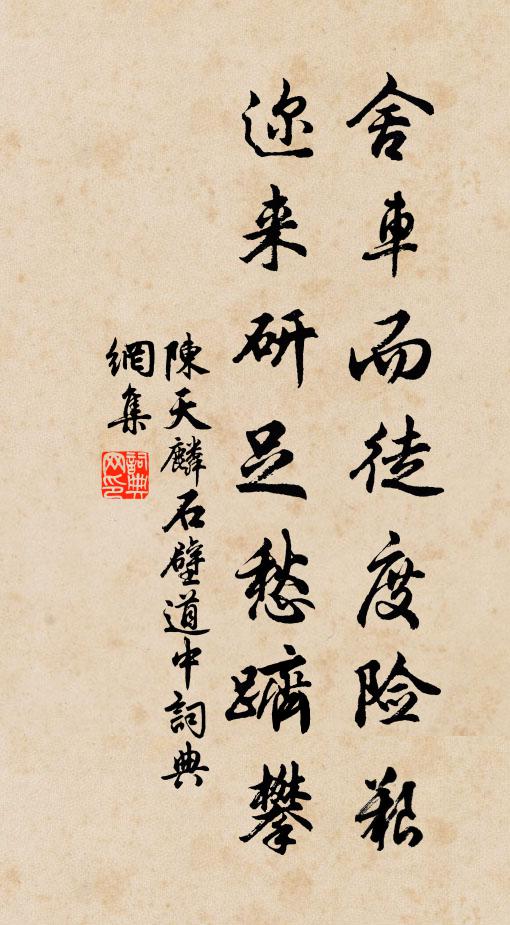 舍車而徒度险艱
迩来研足愁躋攀
陳天麟石壁道中詞典
網集
詞典網印